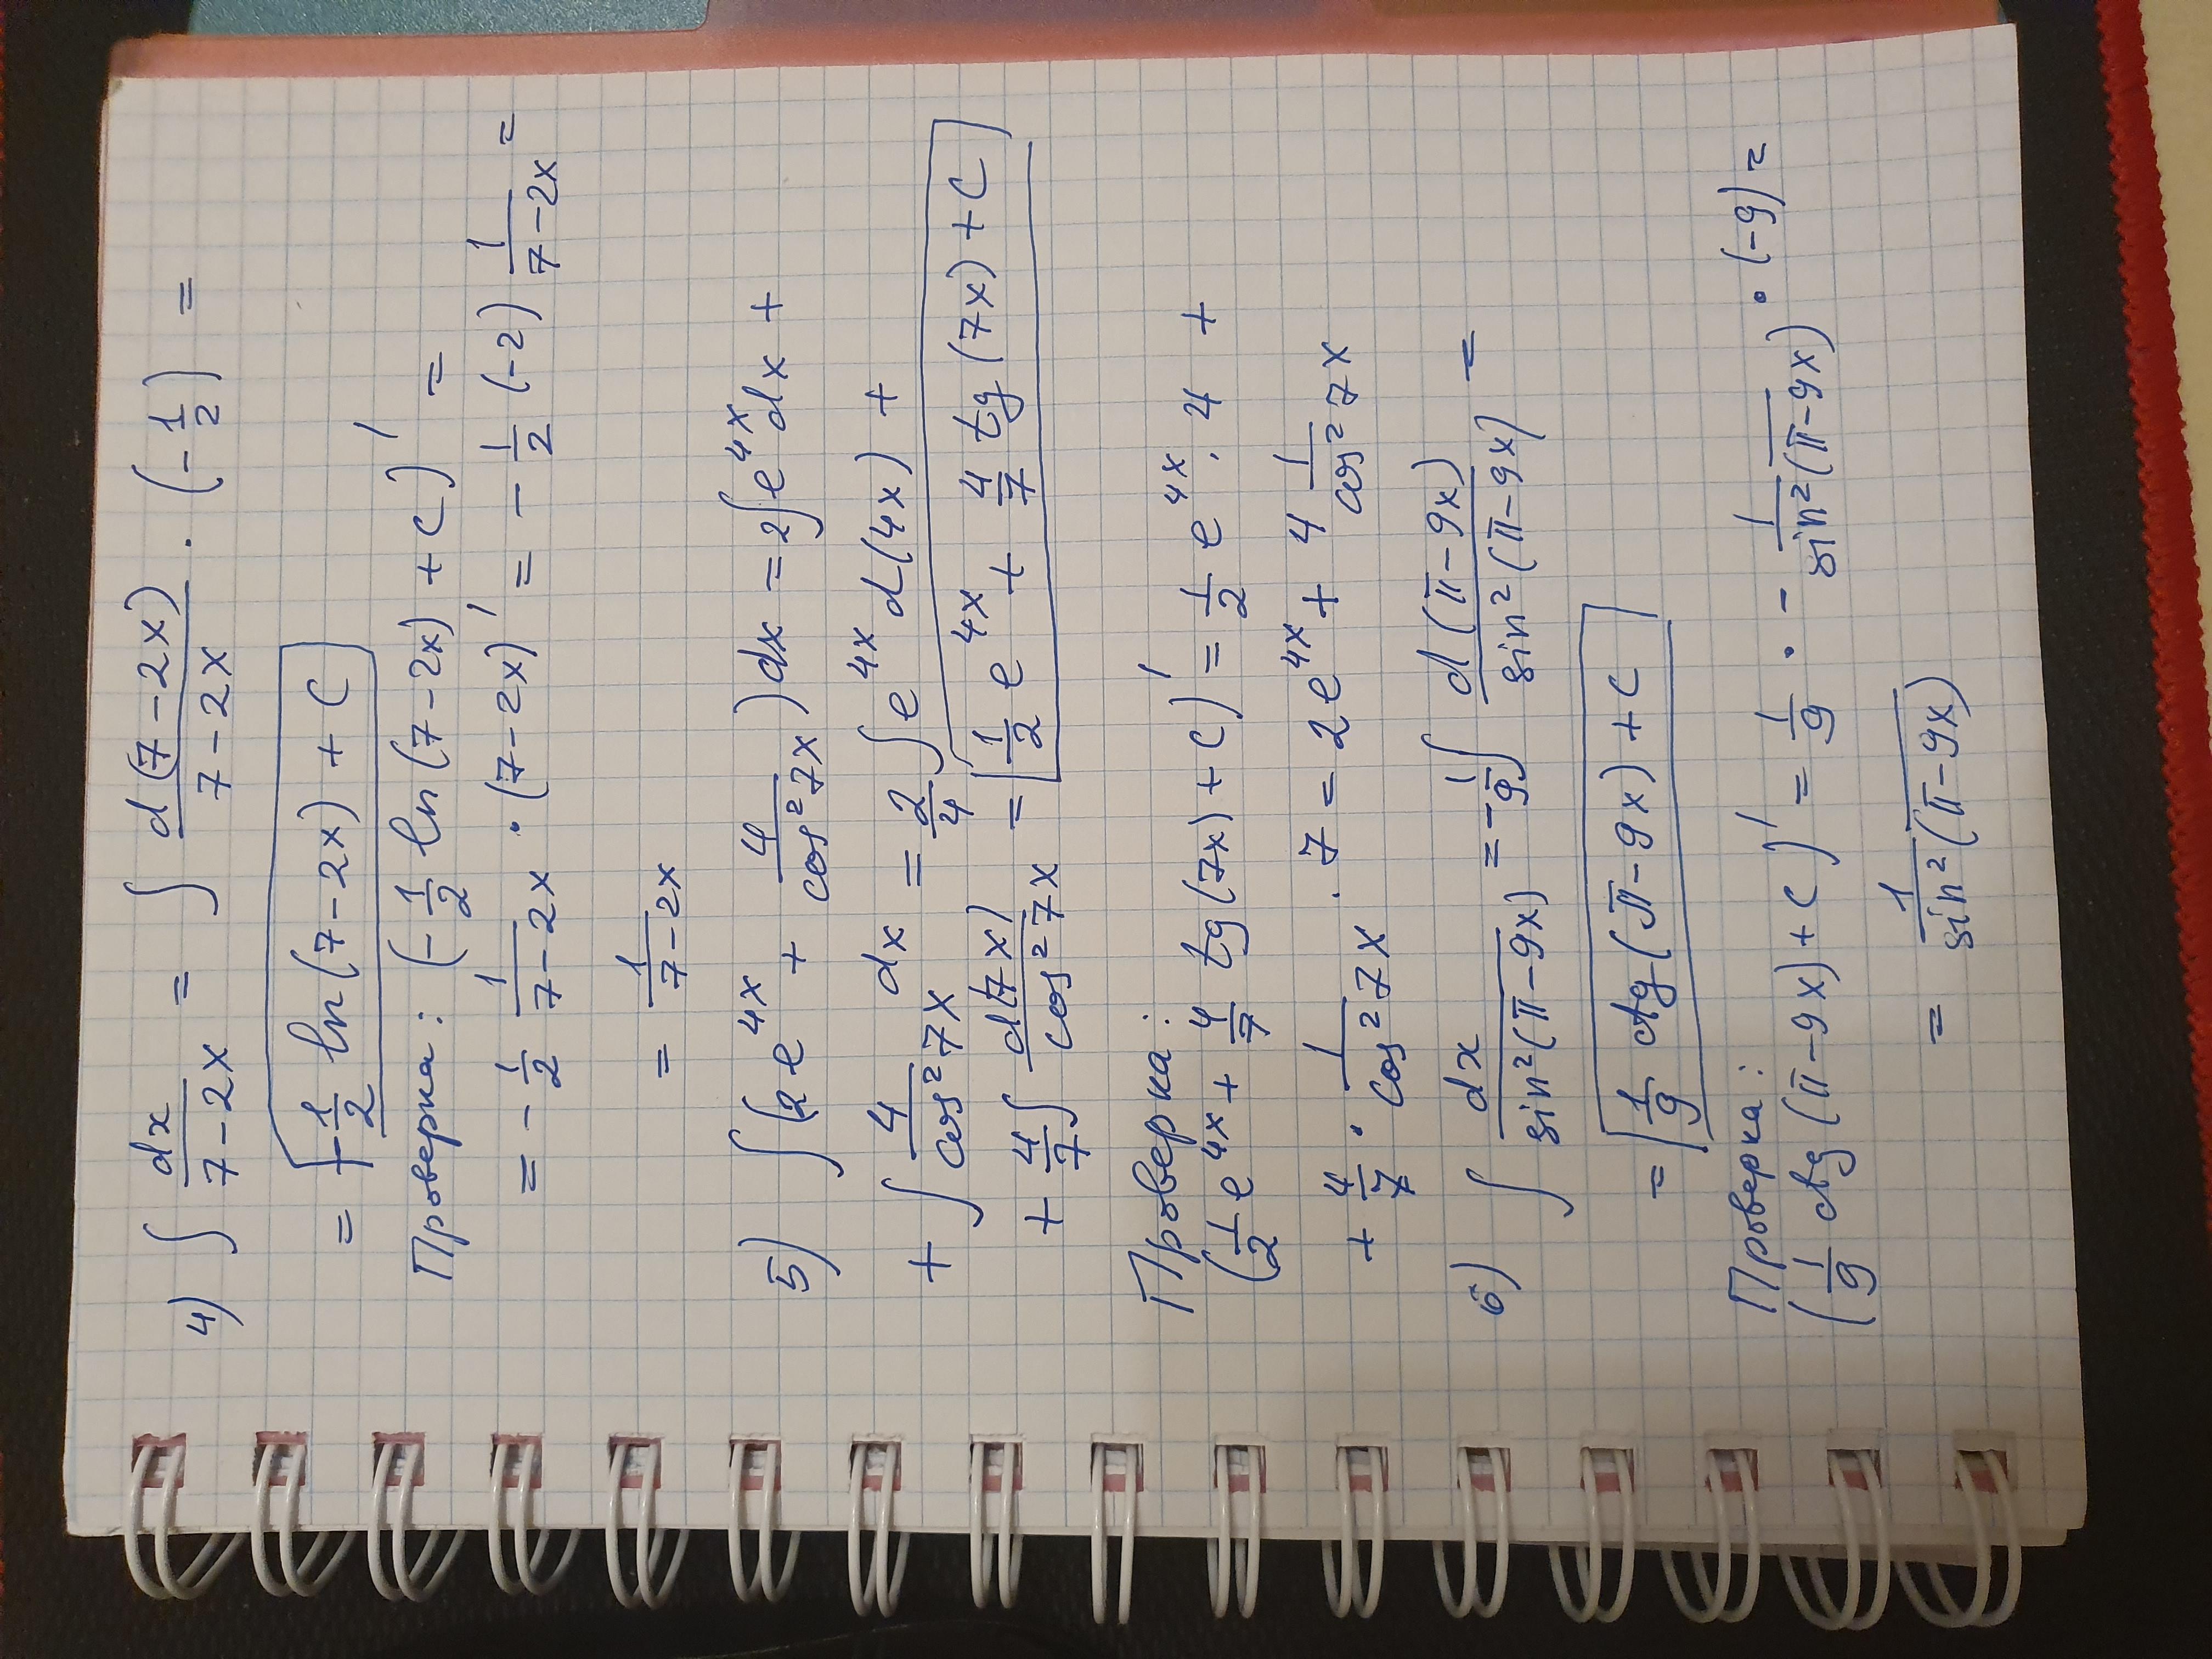 4) ∫ dx/(7-2x) = ∫ d(7-2x)/(7-2x) · (-1/2) =
= -1/2 ln(7-2x) + C
Проверка: (-1/2 ln(7-2x) + C)' =
= -1/2 1/(7-2x) · (7-2x)' = -1/2 (-2) 1/(7-2x) =
= 1/(7-2x)
5) ∫(2e^(4x) + 4/(cos²7x))dx = 2∫e^(4x)dx +
+ ∫ 4/(cos²7x) dx = 2/4 ∫e^(4x) d(4x) +
+ 4/7 ∫ d(7x)/(cos²7x) = 1/2 e^(4x) + 4/7 tg(7x) + C
Проверка:
(1/2 e^(4x) + 4/7 tg(7x) + C)' = 1/2 e^(4x) · 4 +
+ 4/7 · 1/(cos²7x) · 7 = 2e^(4x) + 4 1/(cos²7x)
6) ∫ dx/(sin²(π-9x)) = -1/9 ∫ d(π-9x)/(sin²(π-9x)) =
= 1/9 ctg(π-9x) + C
Проверка:
(1/9 ctg(π-9x) + C)' = 1/9 · - 1/(sin²(π-9x)) · (-9) =
= 1/(sin²(π-9x))